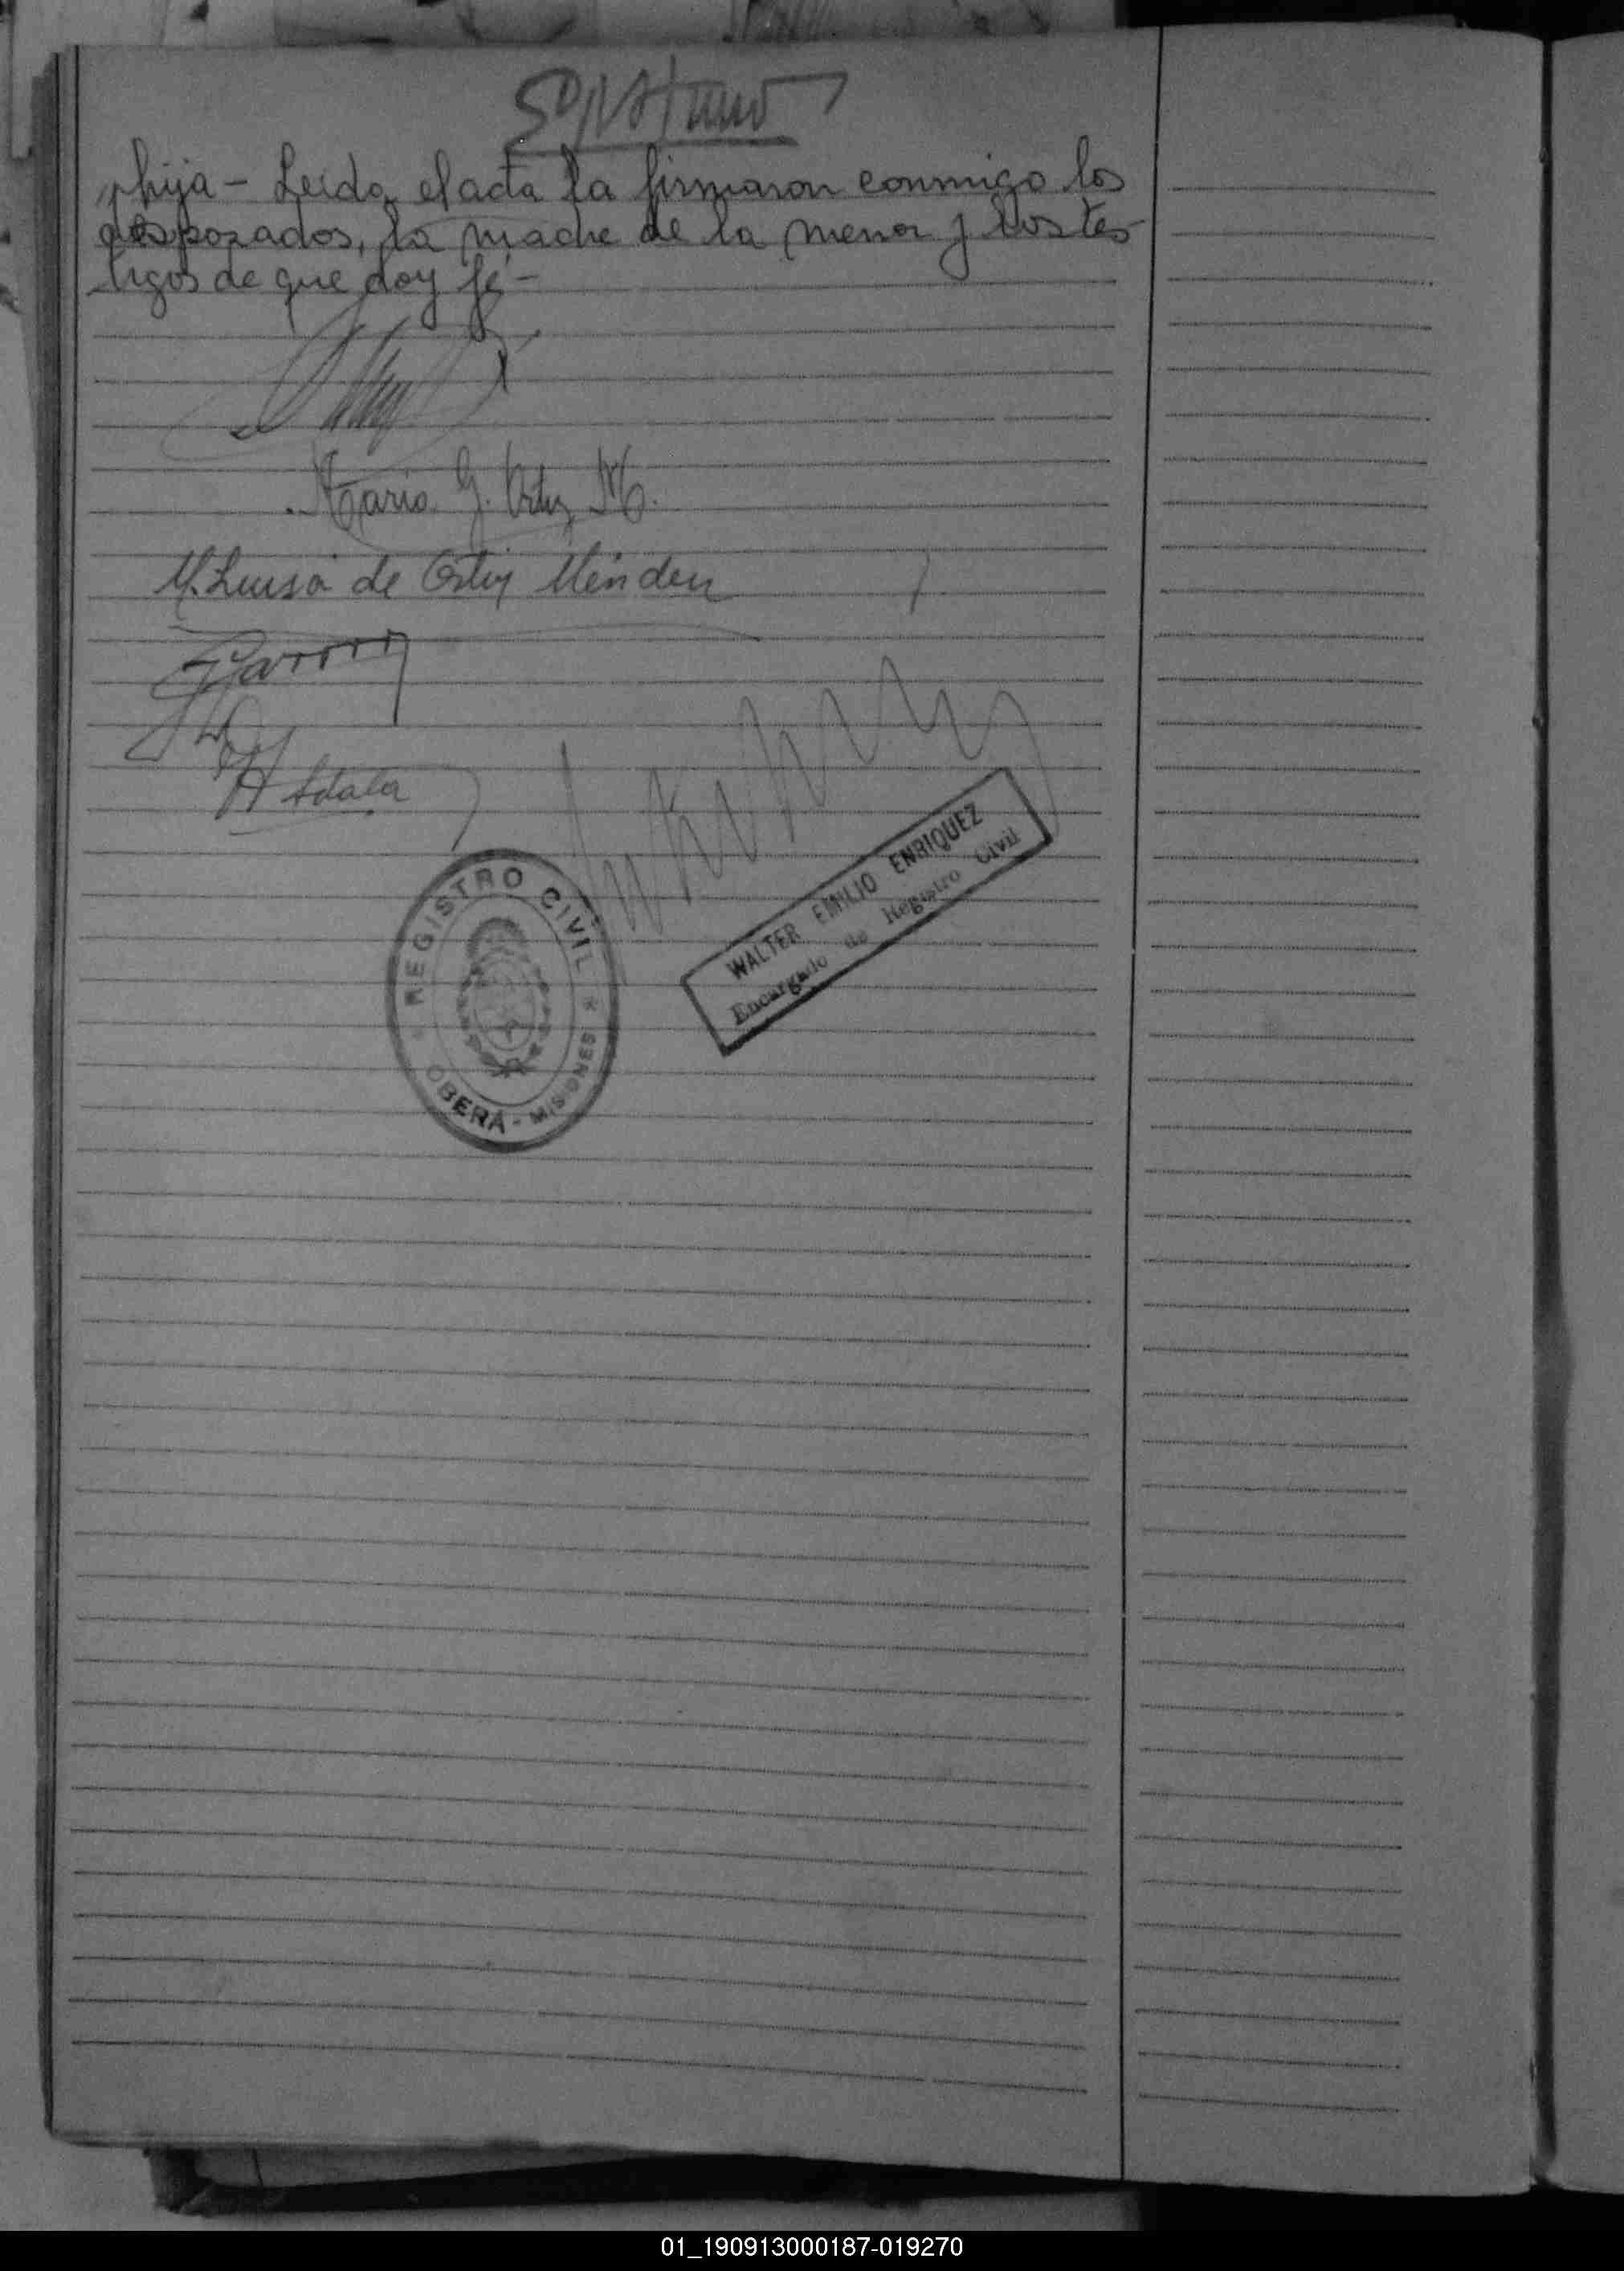 hija - Leida el acta la firmaron conmigo los
desposados, la madre de la menor y los tes
tigos de que doy fé -
Mario G. Ortiz M.
M. Luisa de Ortiz Méndez
REGISTRO CIVIL
OBERÁ - MISIONES
WALTER EMILIO ENRIQUEZ
Encargado de Registro Civil
01_190913000187-019270